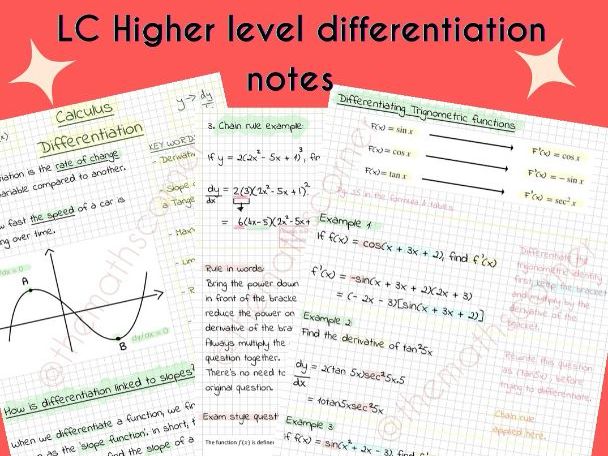 LC Higher level differentiation
notes
Calculus
Differentiation
y → dy
KEY WORD
iation is the rate of change
ariable compared to another.
fast the speed of a car is
ng over time.
A
B
dy/dx = 0
How is differentiation linked to slopes?
when we differentiate a function, we fir
as the 'slope function'. in short,
find the slope of a
- Derivati
- Slope
a Tange
3. Chain rule example:
If y = 2(2x² - 5x + 1)³, fin
dy/dx = 2(3)(2x² - 5x + 1)²
= 6(4x-5)(2x² - 5x +
Rule in words:
Bring the power down
in front of the bracke
reduce the power on
derivative of the bra
Always multiply the
question together.
There's no need to
original question.
Exam style quest
The function f(x) is define
Differentiating Trignometric functions
F(x) = sin x → F'(x) = cos x
F(x) = cos x → F'(x) = - sin x
F(x) = tan x → F'(x) = sec² x
Pg 25 in the formula & tables
Example 1
If f(x) = cos(x + 3x + 2), find f'(x)
f'(x) = -sin(x + 3x + 2)(2x + 3)
= (- 2x - 3)[sin(x + 3x + 2)]
Differentiate the
trigonometric identity
first, keep the bracket
and multiply by the
derivative of the
bracket.
Example 2
Find the derivative of tan²5x
dy/dx = 2(tan 5x)sec²5x.5
= 10tan5xsec²5x
Rewrite this question
as (tan5x)², before
trying to differentiate.
Chain rule
applied here.
Example 3
If f(x) = sin(x² + 2x - 3), find f
@themathscorner